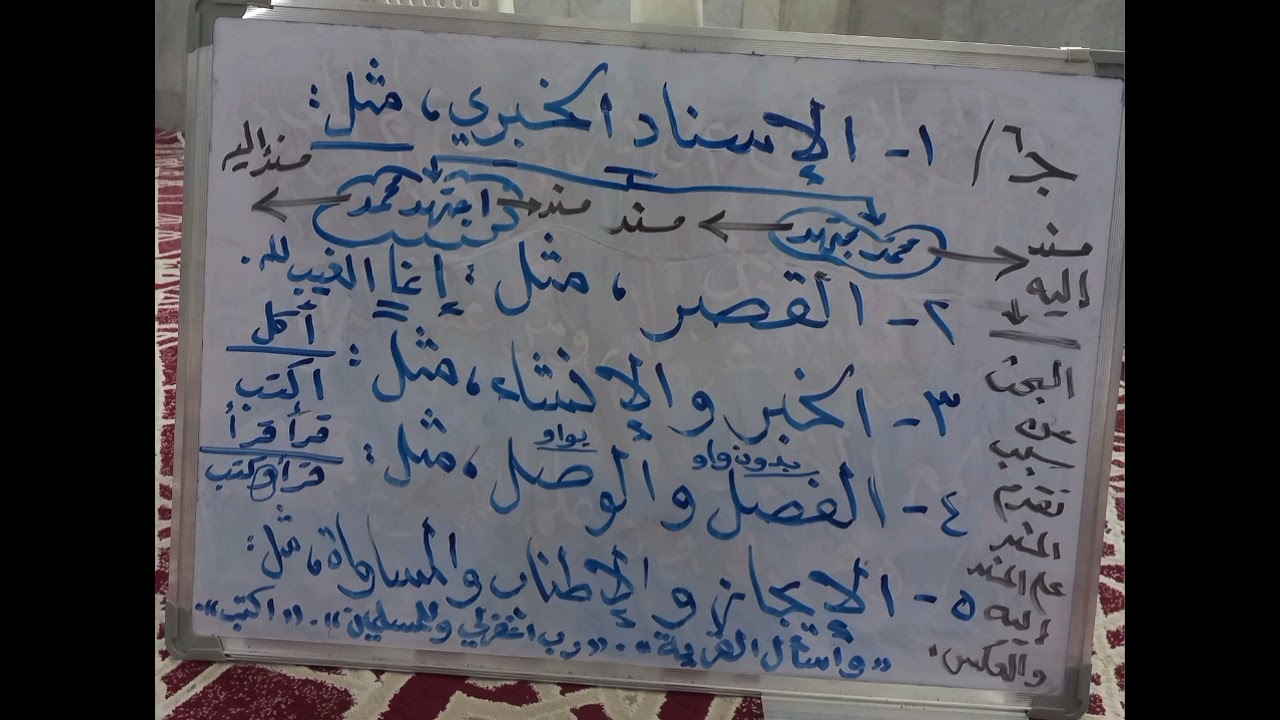 ج٦/ ١- الإسناد الخبري، مثل:
مسند إليه
محمد مجتهد
مسند
مسند
اجتهد محمد
مسند إليه
٢- القصر، مثل: إنما الغيب لله.
٣- الخبر والإنشاء، مثل:
أكل
اكتب
بدون واو
بواو
٤- الفصل والوصل، مثل:
قرأ قرأ
قرأ وكتب
٥- الإيجاز والإطناب والمساواة، مثل:
«واسأل القرية». «رب اغفر لي وللمسلمين». «اكتب».
البحث
عن
سبب
تقدم
المسند
على المسند
إليه
والعكس.